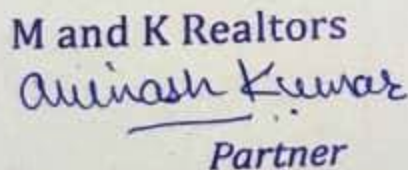 M and K Realtors
Avinash Kumar
Partner